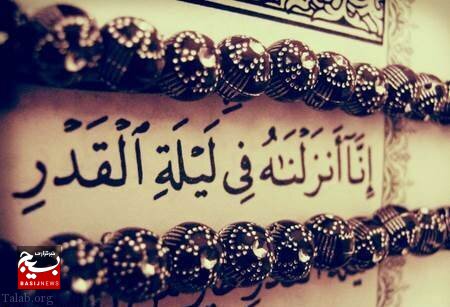 إِنَّآ أَنزَلْنَـٰهُ فِى لَيْلَةِ ٱلْقَدْرِ
خبرگزاری
بسیج
BASIJNEWS
Talab.org